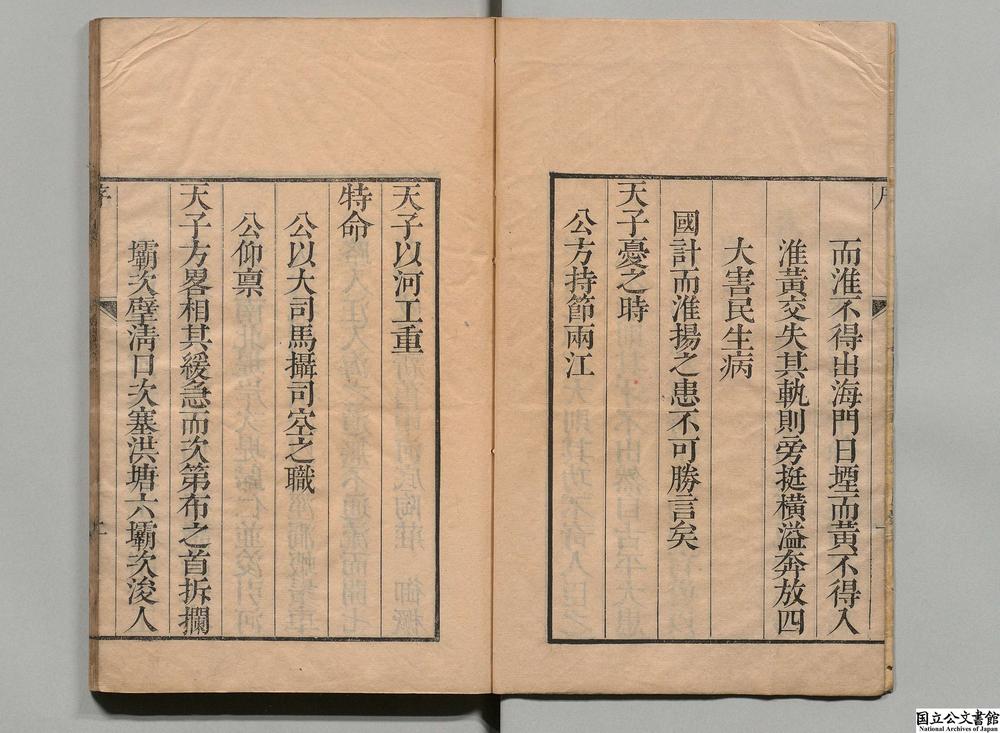 而淮不得出海門日堙而黃不得入
淮黃交失其軌則旁挺橫溢奔放四
大害民生病
國計而淮揚之患不可勝言矣
天子憂之時
公方持節兩江
天子以河工重
特命
公以大司馬攝司空之職
公仰禀
天子方畧相其緩急而次第布之首拆攔
壩次壁淸口次塞洪塘六壩次浚人
序
国立公文書館
National Archives of Japan